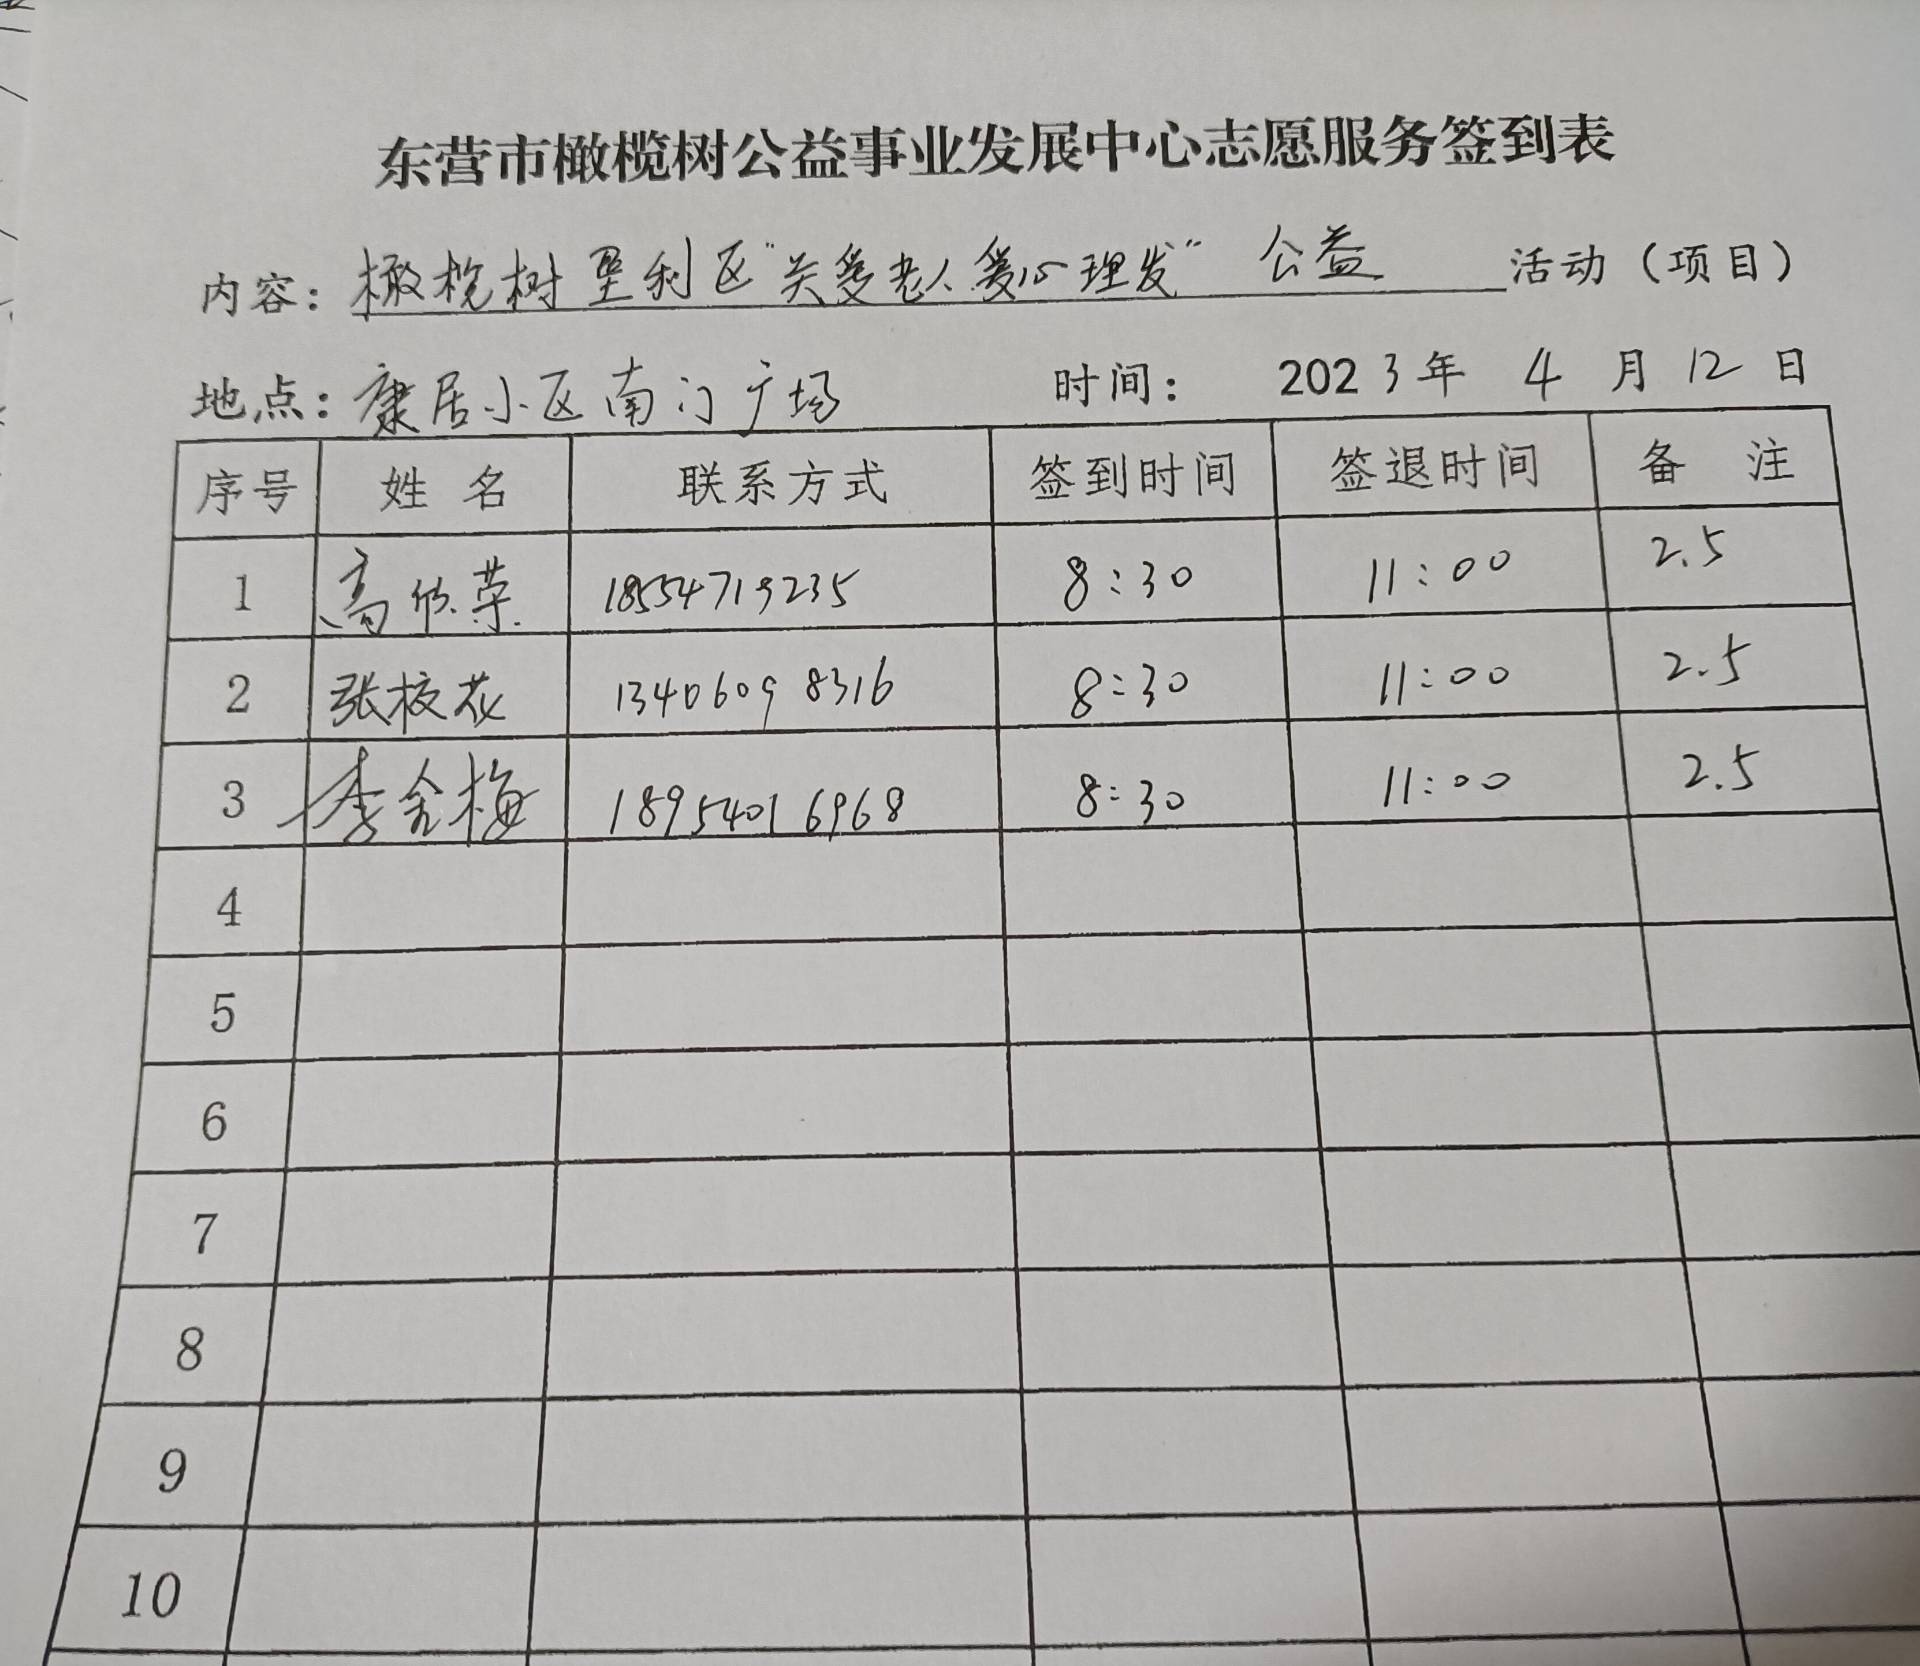 东营市橄榄树公益事业发展中心志愿服务签到表
内容：橄榄树垦利区“关爱老人爱心理发” 公益 活动（项目）
地点：康居小区南门广场 时间： 2023年 4 月 12 日
序号 姓 名 联系方式 签到时间 签退时间 备 注
1 高 荣 18554719235 8:30 11:00 2.5
2 张校花 13406098316 8:30 11:00 2.5
3 李金梅 18954016968 8:30 11:00 2.5
4
5
6
7
8
9
10